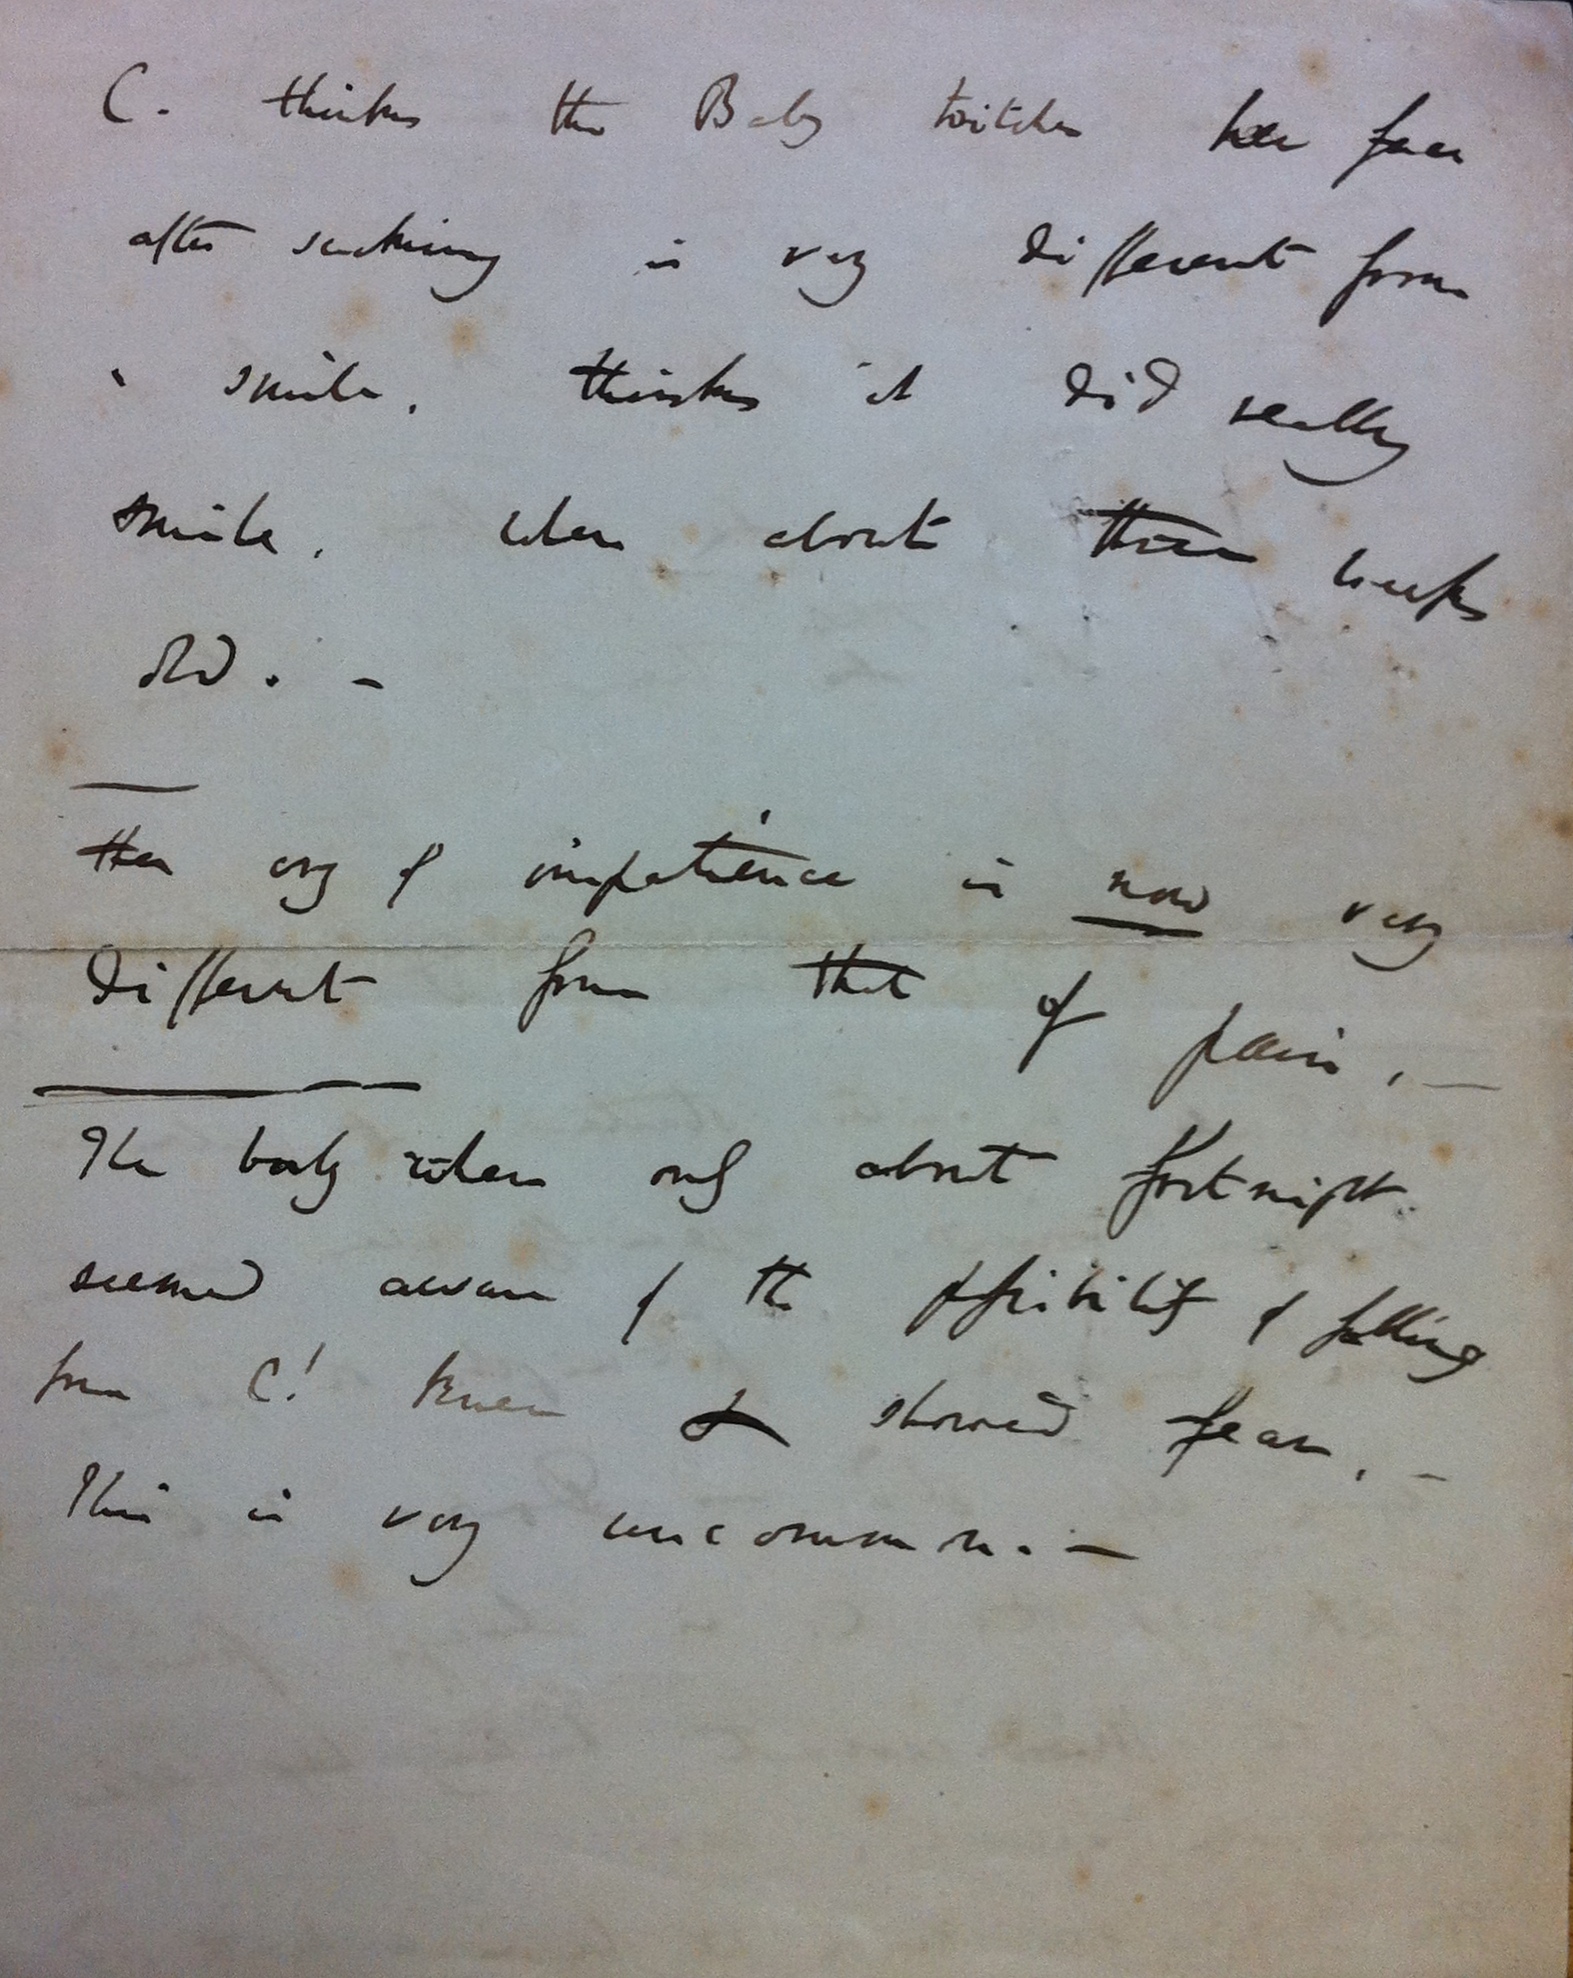 C. thinks the Baby twitches her face
after sucking is very different from
a smile. thinks it did really
smile. when about three weeks
old. —
Her cry of impatience is now very
different from that of pain. —
The baby when only about fortnight
seemed aware of the possibility of falling
from C! knee & showed fear. —
This is very uncommon. —